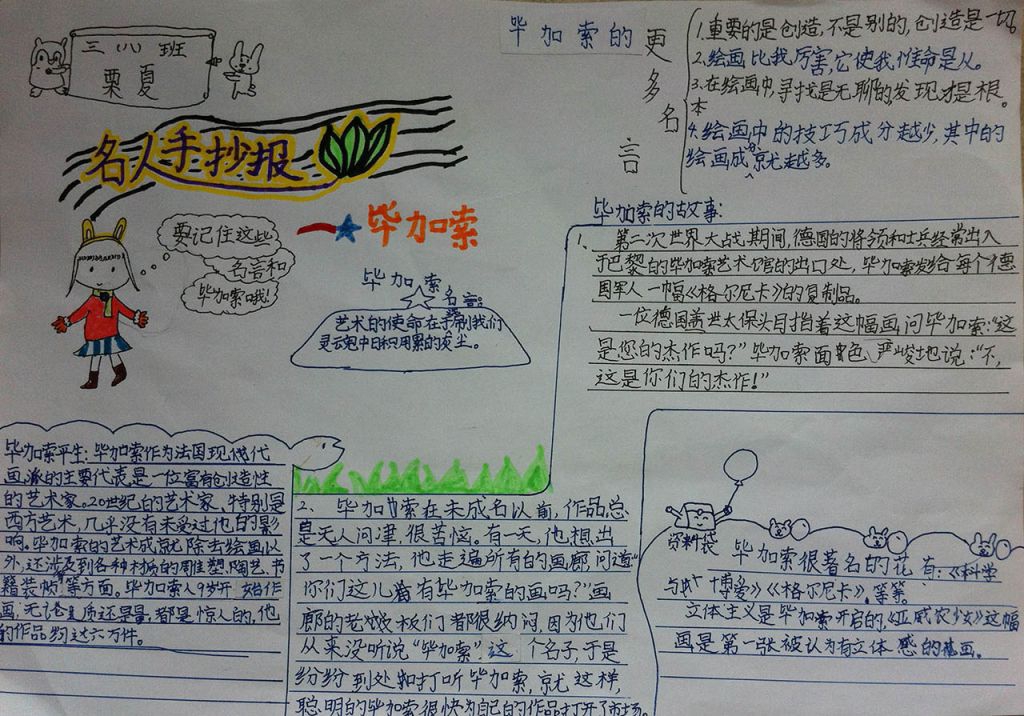 三(八)班
栗夏
名人手抄报
一★毕加索
要记住这些
名言和
毕加索哦!
毕加索
名言:
艺术的使命在于制我们
灵云鬼中日积用累的灰尘。
毕加索的
更多名言
1.重要的是创造,不是别的,创造是一切
2.绘画比我厉害,它使我惟命是从。
3.在绘画中,寻找是无聊的发现才是根
本
4.绘画中的技巧成分越少,其中的
绘画成分就越多。
毕加索的故事:
1、第二次世界大战期间,德国的将领和士兵经常出入
于巴黎的毕加索艺术馆的出口处,毕加索发给每个德
国军人一幅《格尔尼卡》的复制品。
一位德国盖世太保头目指着这幅画问毕加索:“这
是您的杰作吗?”毕加索面色严峻地说:“不,
这是你们的杰作!”
毕加索平生:毕加索作为法国现代代
画派的主要代表是一位富有创造性
的艺术家。20世纪的艺术家、特别是
西方艺术,几乎没有未受过他的影
响。毕加索的艺术成就除去绘画以
外,还涉及到各种材质的雕塑、陶艺、书
籍装帧等方面。毕加索人9岁开始作
画,无论质还是量,都是惊人的,他
的作品约达六万件。
2、毕加索在未成名以前,作品总
是无人问津,很苦恼。有一天,他想出
了一个方法,他走遍所有的画廊问道“
你们这儿有毕加索的画吗?”画
廊的老板们都很纳闷,因为他们
从来没听说“毕加索”这个名子,于是
纷纷到处打听毕加索,就这样,
聪明的毕加索很快为自己的作品打开了市场。
资料袋
毕加索很著名的花有:《科学
与博爱》《格尔尼卡》,等等。
立体主义是毕加索开启的,《亚威农少女》这幅
画是第一张被认为有立体感的画。